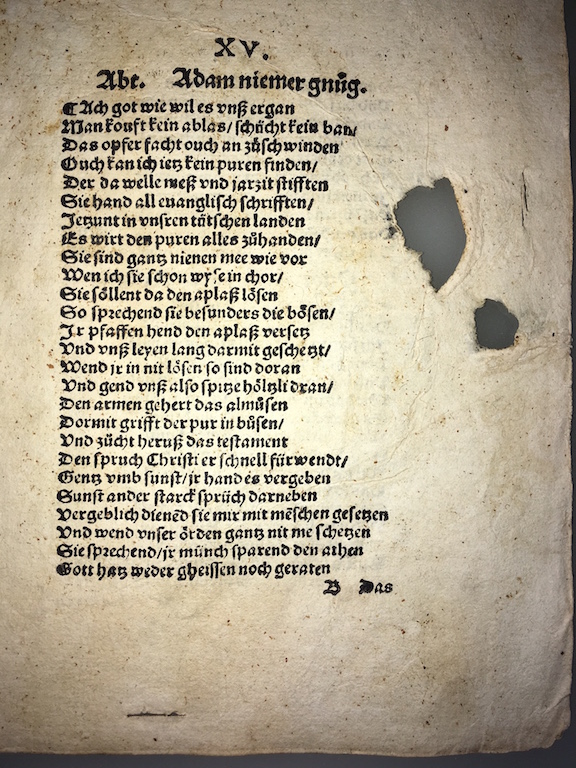 XV.
Abt. Adam niemer gnůg.
Ach got wie wil es vnß ergan
Man kouft kein ablas/ schücht kein ban/
Das opfer facht ouch an zůschwinden
Ouch kan ich ietz kein puren finden/
Der da welle meß vnd jarzit stifften
Sie hand all euanglisch schrifften/
Jetzunt in vnsren tütschen landen
Es wirt den puren alles zůhanden/
Sie sind gantz nienen mee wie vor
Wen ich sie schon wyse in chor/
Sie söllent da den aplaß lösen
So sprechend sie besunders die bösen/
Ir pfaffen hend den aplaß versetz
Vnd vnß leyen lang darmit geschetzt/
Wend jr in nit lösen so sind doran
Vnd gend vnß also spitze höltzli dran/
Den armen gehert das almůsen
Dormit grifft der pur in bůsen/
Vnd zücht heruß das testament
Den spruch Christi er schnell fürwendt/
Gentz vmb sunst/ jr hand es vergeben
Sunst ander starck sprüch darneben
Vergeblich dienēd sie mir mit mēschen gesetzen
Vnd wend vnser örden gantz nit me schetzen
Sie sprechend/ jr münch sparend den athen
Gott hatz weder gheissen noch geraten
B Das